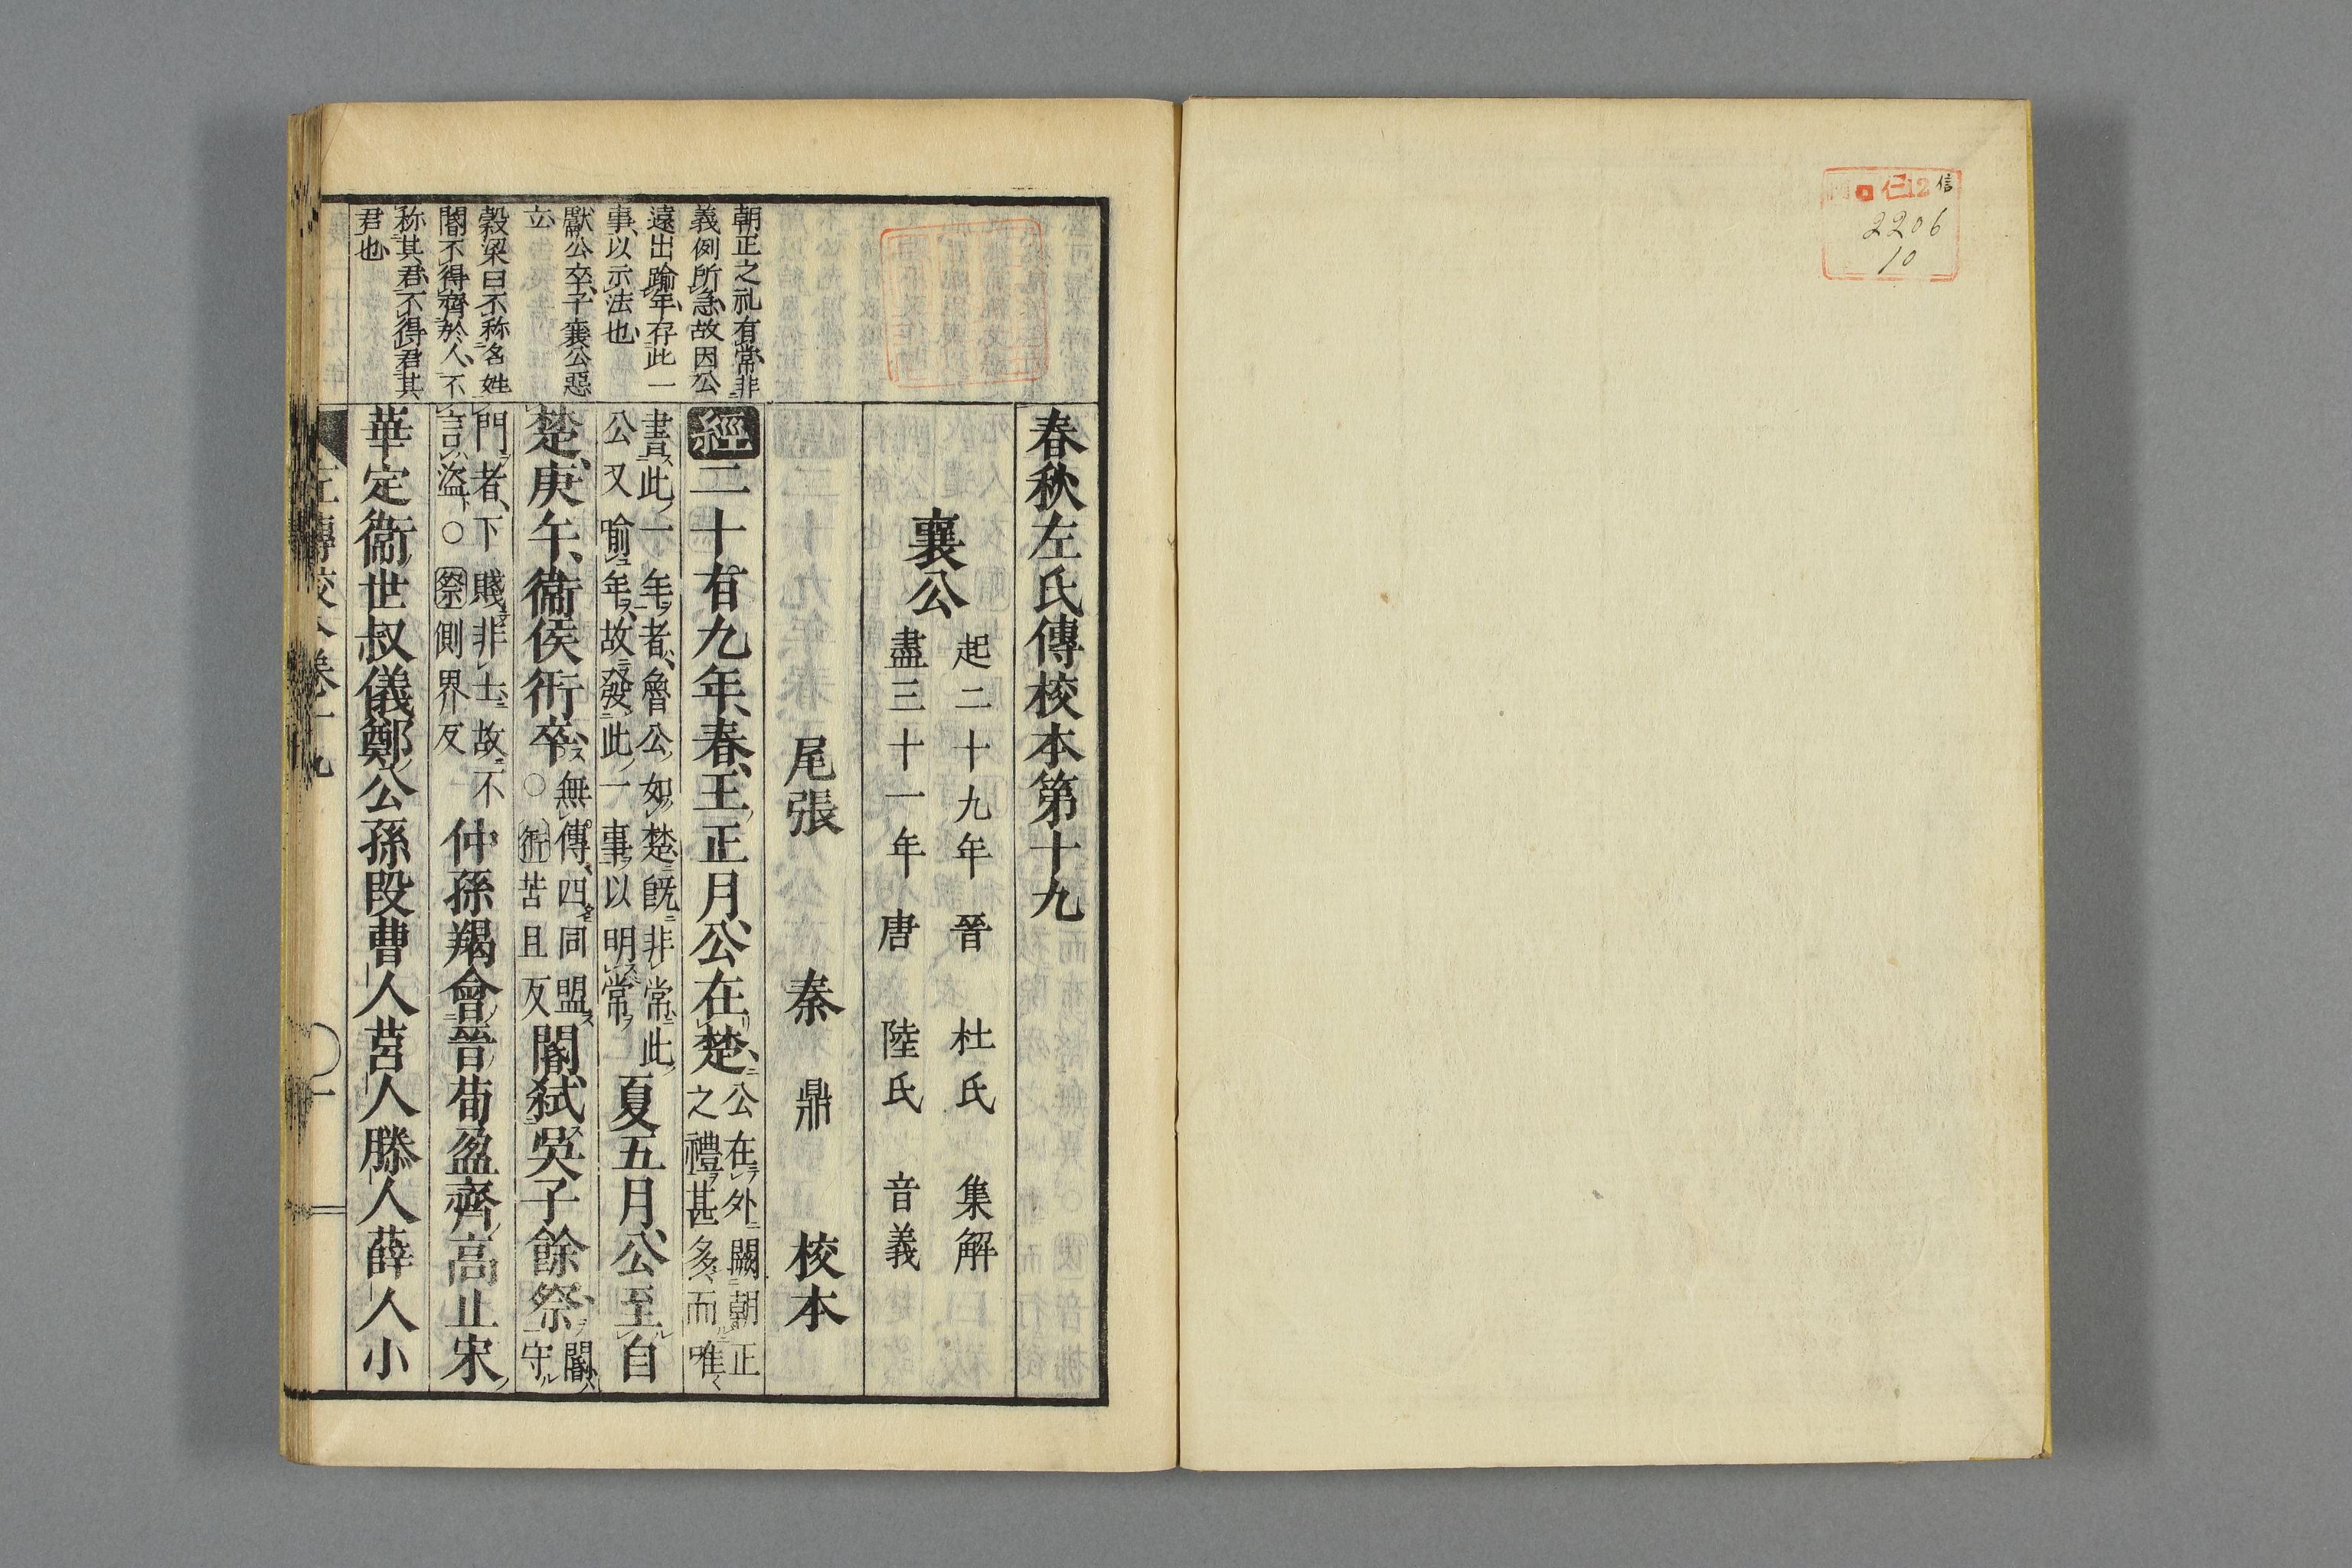 仁12
信
2206
10
春秋左氏傳校本第十九
襄公
起二十九年
盡三十一年
晉 杜氏 集解
唐 陸氏 音義
尾張 秦 鼎 校本
朝正之礼有常非
義例所急故因公
遠出踰年存此一
事以示法也
獻公卒子襄公惡
立
穀梁曰不称名姓
閽不得齊於人不
称其君不得君其
君也
經二十有九年春王正月公在楚
公在外闕朝正
之禮甚多而唯
書此一年者魯公如楚既非常此
公又喻年故發此一事以明常
夏五月公至自
楚庚午衞侯衎卒
無傳四同盟
○衎苦旦反
閽弑吳子餘祭
閽守
門者下賤非士故不
言盜○祭側界反
仲孫羯會晉荀盈齊高止宋
華定衞世叔儀鄭公孫段曹人莒人滕人薛人小